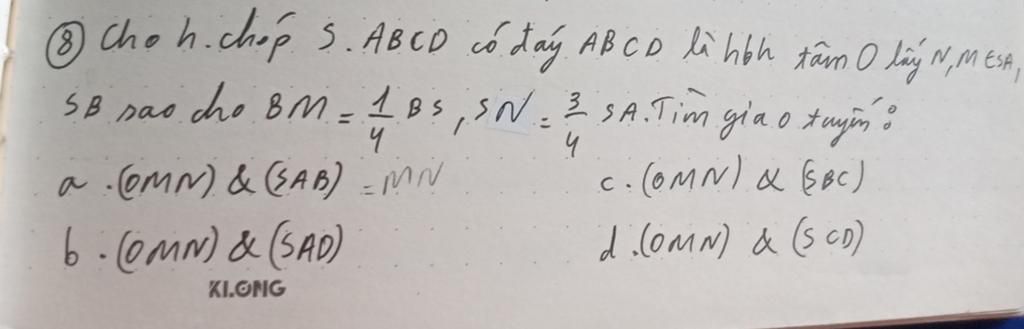 ⑧ Cho h.chóp S.ABCD có đáy ABCD là hbh tâm O lấy N,M ∈ SA,
SB sao cho BM = 1/4 BS, SN = 3/4 SA. Tìm giao tuyến:
a. (OMN) & (SAB) = MN
c. (OMN) & (SBC)
b. (OMN) & (SAD)
d. (OMN) & (SCD)
KLONG